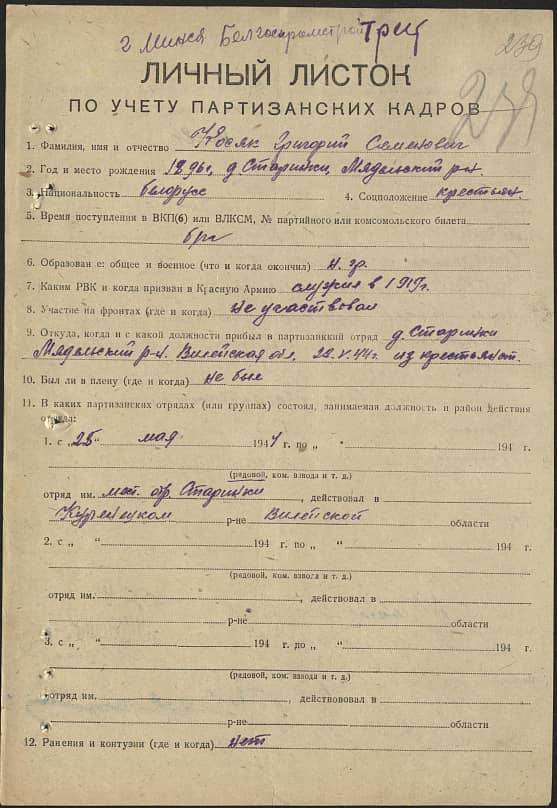 г Минск Белгоспромстрой Трест
239
ЛИЧНЫЙ ЛИСТОК
ПО УЧЕТУ ПАРТИЗАНСКИХ КАДРОВ
1. Фамилия, имя и отчество Григорий Семенович
2. Год и место рождения 1896г. д. Старинки, Мядельский р-н.
3. Национальность белорусс 4. Соцположение крестьян.
5. Время поступления в ВКП(б) или ВЛКСМ, № партийного или комсомольского билета
бп
6. Образован е: общее и военное (что и когда окончил) н. гр.
7. Каким РВК и когда призван в Красную Армию служил в 1919г.
8. Участие на фронтах (где и когда) не участвовал
9. Откуда, когда и с какой должности прибыл в партизанкий отряд д. Старинки
Мядельский р-н. Вилейская обл. 22.V.44г. из крестьянст.
10. Был ли в плену (где и когда) не был
11. В каких партизанских отрядах (или группах) состоял, занимаемая должность и район действия
отряда:
1. с „25" мая 1944 г. по „ " 194 г.
(рядовой, ком. взвода и т. д.)
отряд им. мест. отр. Старинки , действовал в
Куренецком р-не Вилейской области
2. с „ " 194 г. по „ " 194 г.
(рядовой, ком. взвода и т. д.)
отряд им. , действовал в
р-не области
3. с „ " 194 г. по „ " 194 г.
(рядовой, ком. взвода и т. д.)
отряд им. , действовал в
р-не области
12. Ранения и контузии (где и когда) нет